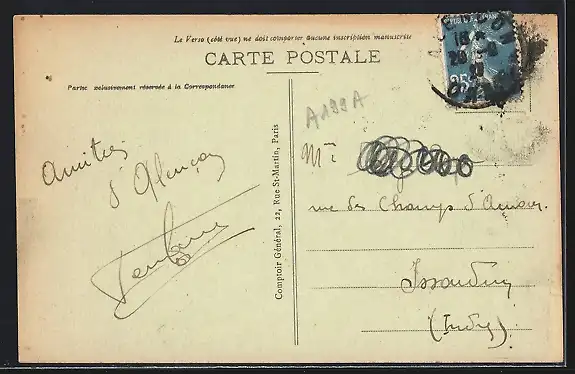 Le Verso (côté vue) ne doit comporter aucune inscription manuscrite
CARTE POSTALE
Partie exclusivement réservée à la Correspondance
A199A
25c
Amitiés
d'Alençon
Comptoir Général, 22, Rue St-Martin, Paris
Mr
rue des Champs d'Amour
Issoudun
(Indre)